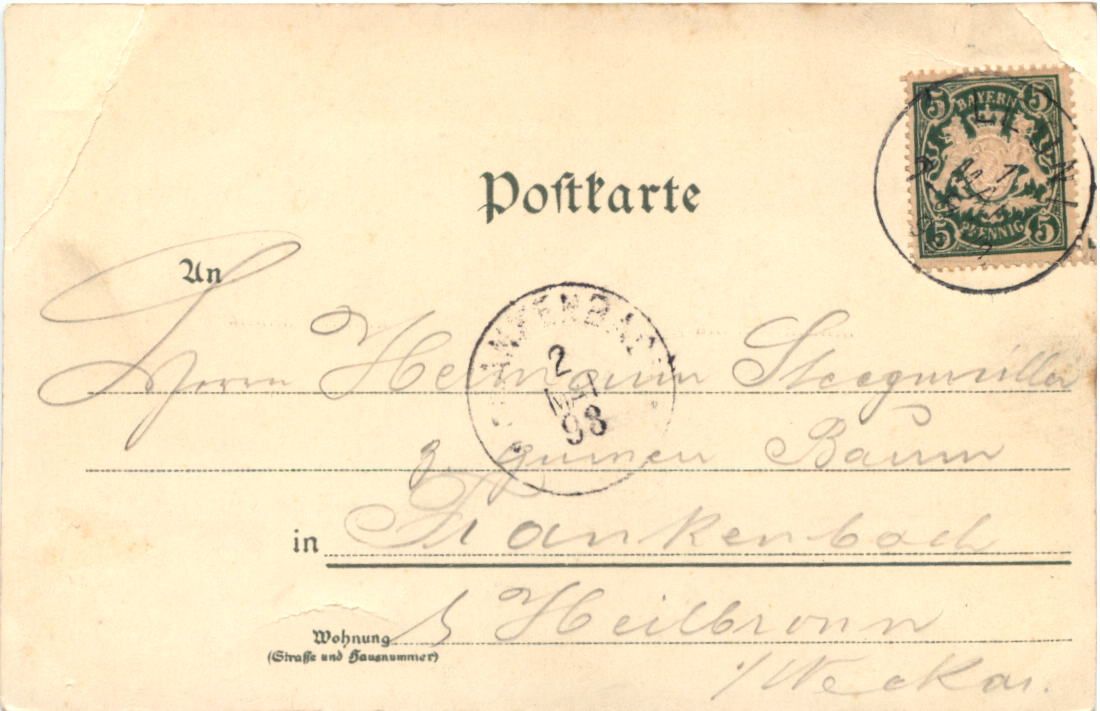 5 BAYERN 5
5 PFENNIG 5
Postkarte
An
Herrn Hermann Steegmüller
FRANKENBACH
2
MAI
98
z grünen Baum
in Frankenbach
b Heilbronn
Wohnung
(Straße und Hausnummer)
a/Neckar.